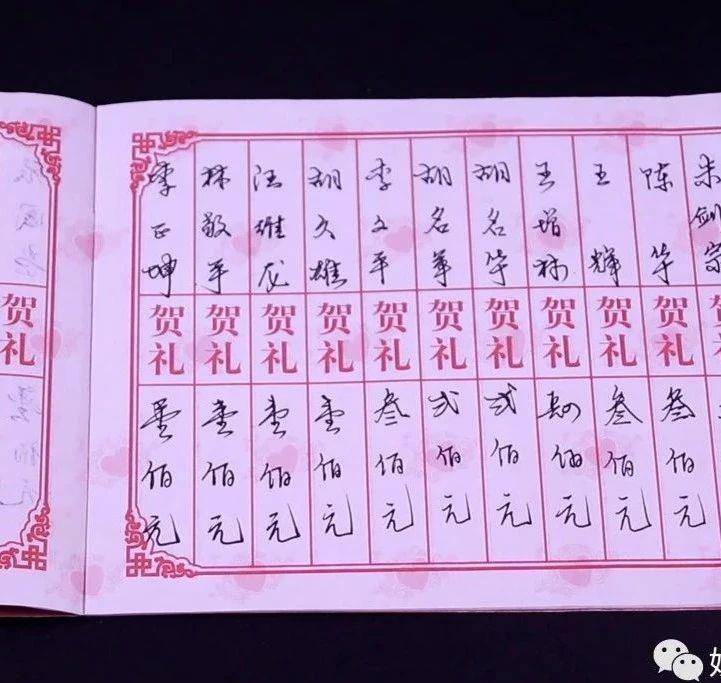 朱剑
贺礼
陈华 贺礼 叁佰元
王辉 贺礼 叁佰元
王增 贺礼 佰元
胡名华 贺礼 弍佰元
胡名军 贺礼 弍佰元
李文平 贺礼 叁佰元
胡文雄 贺礼 壹佰元
汪雄龙 贺礼 壹佰元
林敬平 贺礼 壹佰元
李正坤 贺礼 壹佰元
贺礼